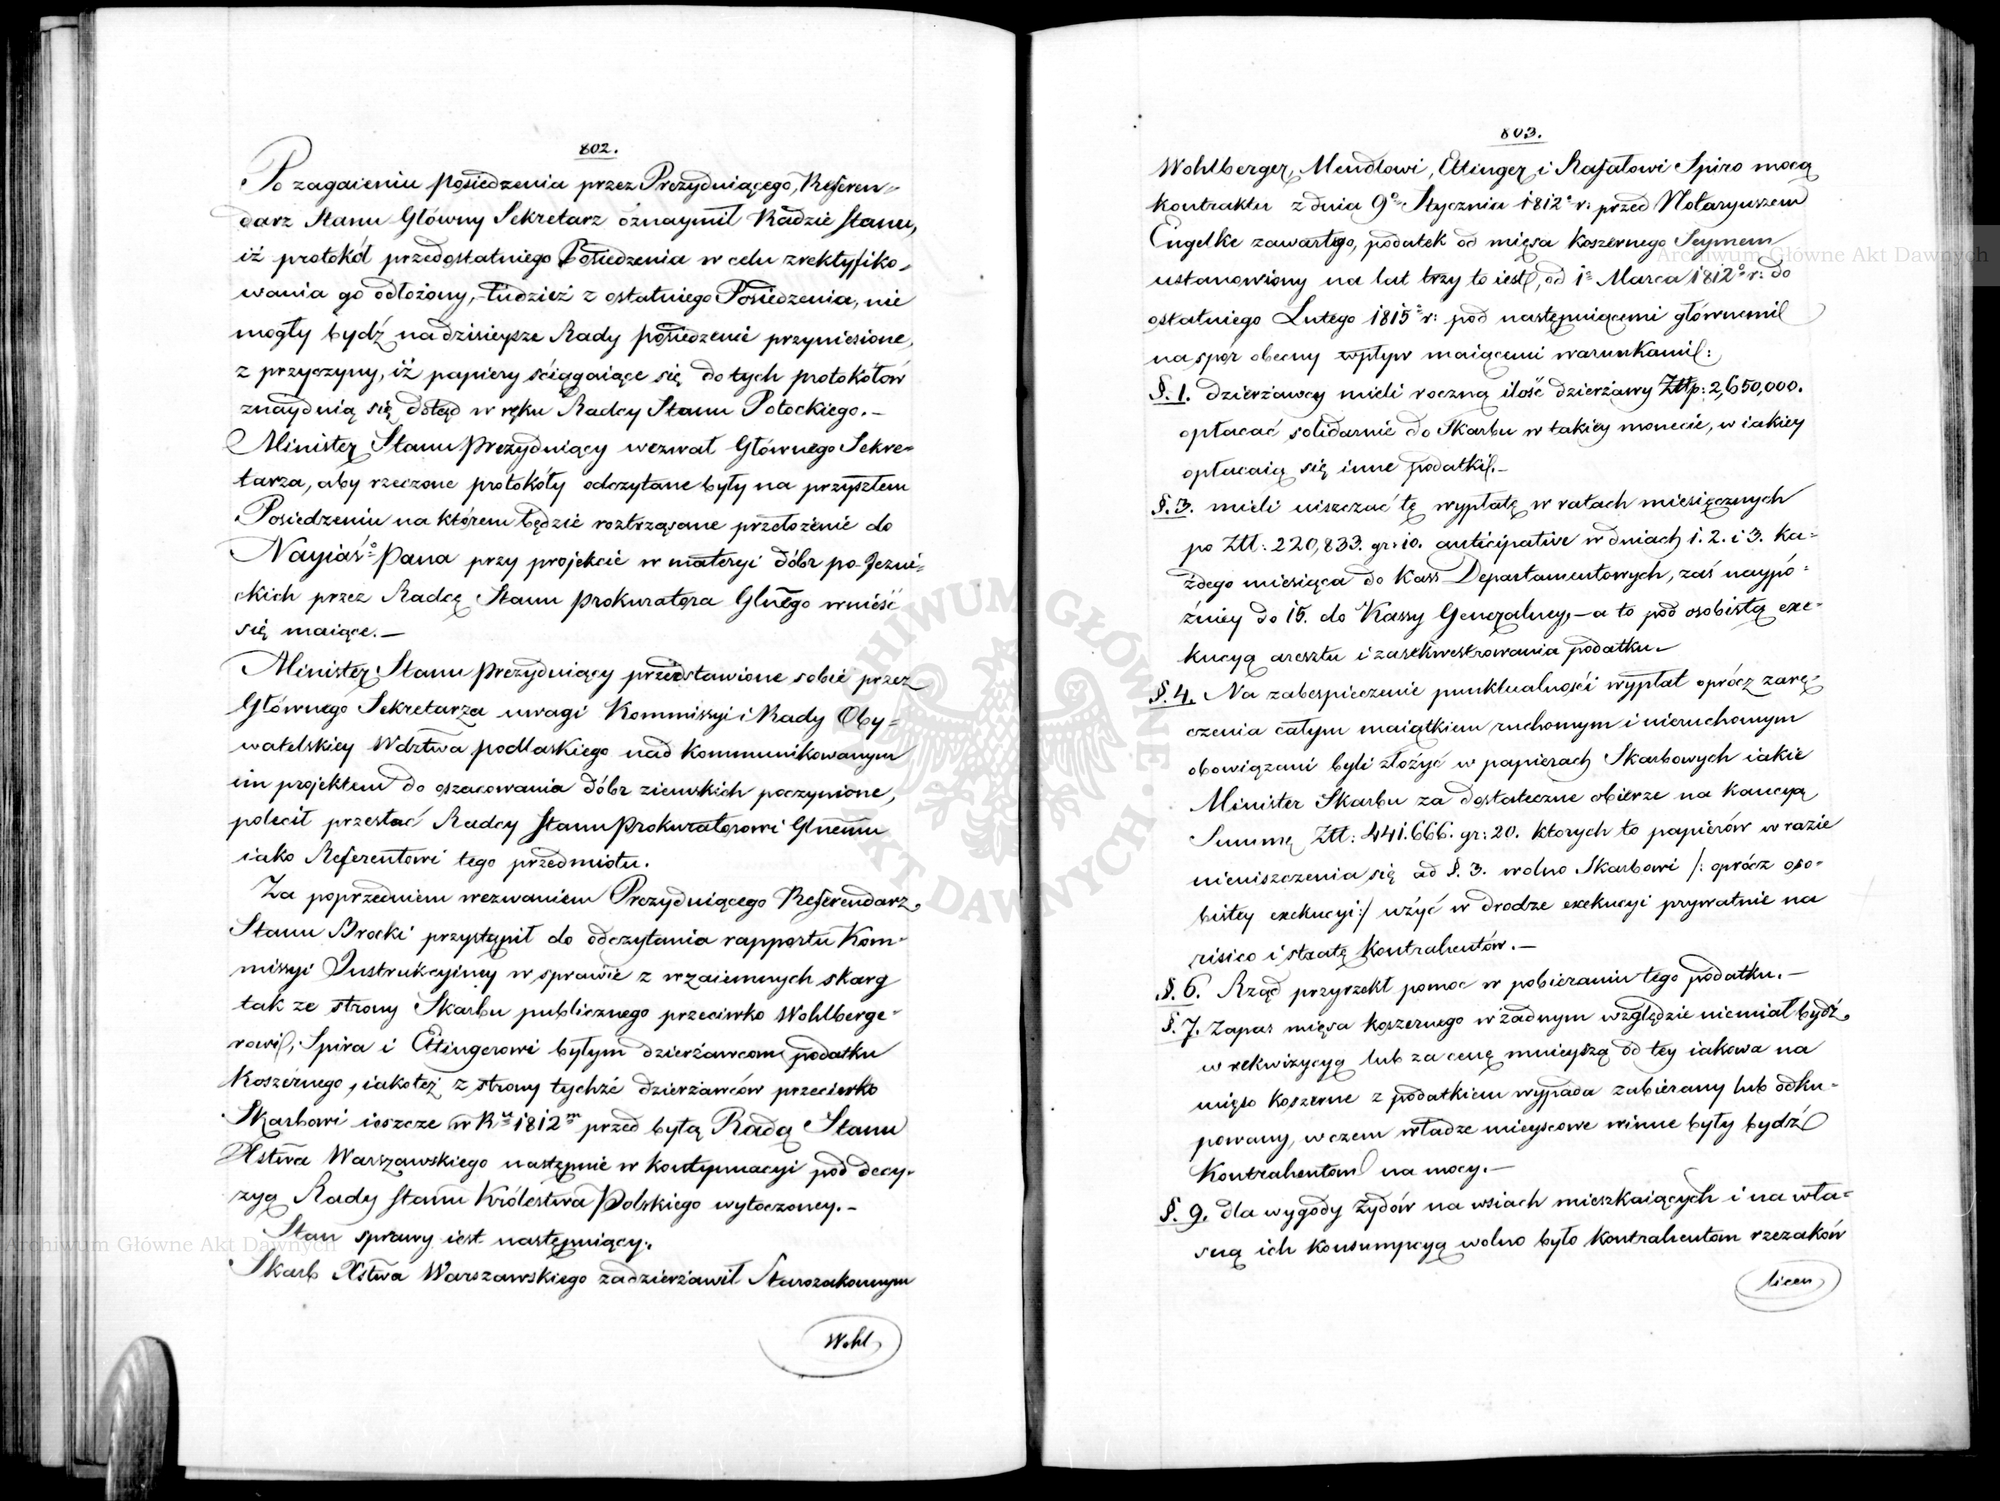 802.
Po zagaieniu posiedzenia przez Prezyduiącego, Referen-
darz Stanu Główny Sekretarz oznaymił Radzie Stanu,
iż protokół przedostatniego Posiedzenia w celu zrektyfiko-
wania go odłożony, tudzież z ostatniego Posiedzenia, nie
mogły bydź na dzisieysze Rady posiedzenie przyniesione,
z przyczyny, iż papiery ściągaiące się do tych protokołów
znayduią się dotąd w ręku Radcy Stanu Potockiego.-
Minister Stanu prezyduiący wezwał Głównego Sekre-
tarza, aby rzeczone protokóły odczytane były na przyszłem
Posiedzeniu na którem będzie roztrząsane przełożenie do
Nayiaś:o Pana przy projekcie w materyi dóbr po-Jezui-
ckich przez Radcę Stanu prokuratora Glnego wnieść
się maiące.-
Minister Stanu prezyduiący przedstawione sobie przez
Głównego Sekretarza uwagi Kommissyi i Rady Oby-
watelskiey Wdztwa podlaskiego nad kommunikowanym
im projektem do oszacowania dóbr ziemskich poczynione,
polecił przesłać Radcy Stanu prokuratorowi Glnemu
iako Referentowi tego przedmiotu.
Za poprzedniem wezwaniem Prezyduiącego Referendarz
Stanu Brocki przystąpił do odczytania rapportu Kom-
missyi Instrukcyiney w sprawie z wzaiemnych skarg
tak ze strony Skarbu publicznego przeciwko Wohlberge-
rowi, Spira i Ettingerowi byłym dzierżawcom podatku
Koszernego, iakoteż z strony tychże dzierżawców przeciwko
Skarbowi ieszcze w Ru 1812m przed byłą Radą Stanu
Xstwa Warszawskiego następnie w kontynuacyi pod decy-
zyą Rady Stanu Królestwa Polskiego wytoczoney.-
Stan sprawy iest następuiący.
Skarb Xstwa Warszawskiego zadzierżawił Starozakonnym
Wohl
803.
Wohlberger, Mendlowi, Ettinger i Rafałowi Spiro mocą
kontraktu z dnia 9o Stycznia 1812o r: przed Notaryuszem
Engelke zawartego, podatek od mięsa koszernego Seymem
ustanowiony na lat trzy to iest, od 1o Marca 1812o r: do
ostatniego Lutego 1815o r: pod następuiącemi głównemi
na spór obecny wpływ maiącemi warunkami:
§.1. dzierżawcy mieli roczną ilość dzierżawy Złtp: 2,650,000.
opłacać solidarnie do Skarbu w takiey monecie, w iakiey
opłacaią się inne podatki.-
§.3. mieli uiszczać tę wypłatę w ratach miesięcznych
po Złt: 220,833. gr: 10. anticipative w dniach 1. 2. i 3. ka-
żdego miesiąca do Kass Departamentowych, zaś naypó-
źniey do 15. do Kassy Generalney,- a to pod osobistą exe-
kucyą aresztu i zasekwestrowania podatku.-
§.4. Na zabezpieczenie punktualności wypłat oprócz zarę-
czenia całym maiątkiem ruchomym i nieruchomym
obowiązani byli złożyć w papierach Skarbowych iakie
Minister Skarbu za dostateczne obierze na kaucyą
Summę Złt: 441.666. gr: 20. których to papierów w razie
nieuiszczenia się ad §. 3. wolno Skarbowi /: oprócz oso-
bistey exekucyi :/ użyć w drodze exekucyi prywatnie na
risico i stratę kontrahentów.-
§. 6. Rząd przyrzekł pomoc w pobieraniu tego podatku.-
§. 7. Zapas mięsa koszernego w żadnym względzie niemiał bydź
w rekwizycyą lub za cenę mnieyszą od tey iakowa na
mięso koszerne z podatkiem wypada zabierany lub odku-
powany, w czem władze mieyscowe winne były bydź
Kontrahentom na mocy.-
§. 9. dla wygody żydów na wsiach mieszkaiących i na wła-
sną ich konsumpcyą wolno było kontrahentom rzezaków
licen
Archiwum Główne Akt Dawnych
Archiwum Główne Akt Dawnych
ARCHIWUM GŁÓWNE AKT DAWNYCH